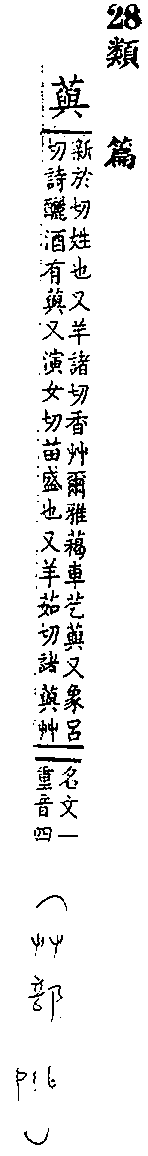 28類篇
藇
新於切姓也又羊諸切香艸爾雅藒車芞藇又象呂
切詩釃酒有藇又演女切苗盛也又羊茹切諸藇艸
名文一
重音四
(艸部